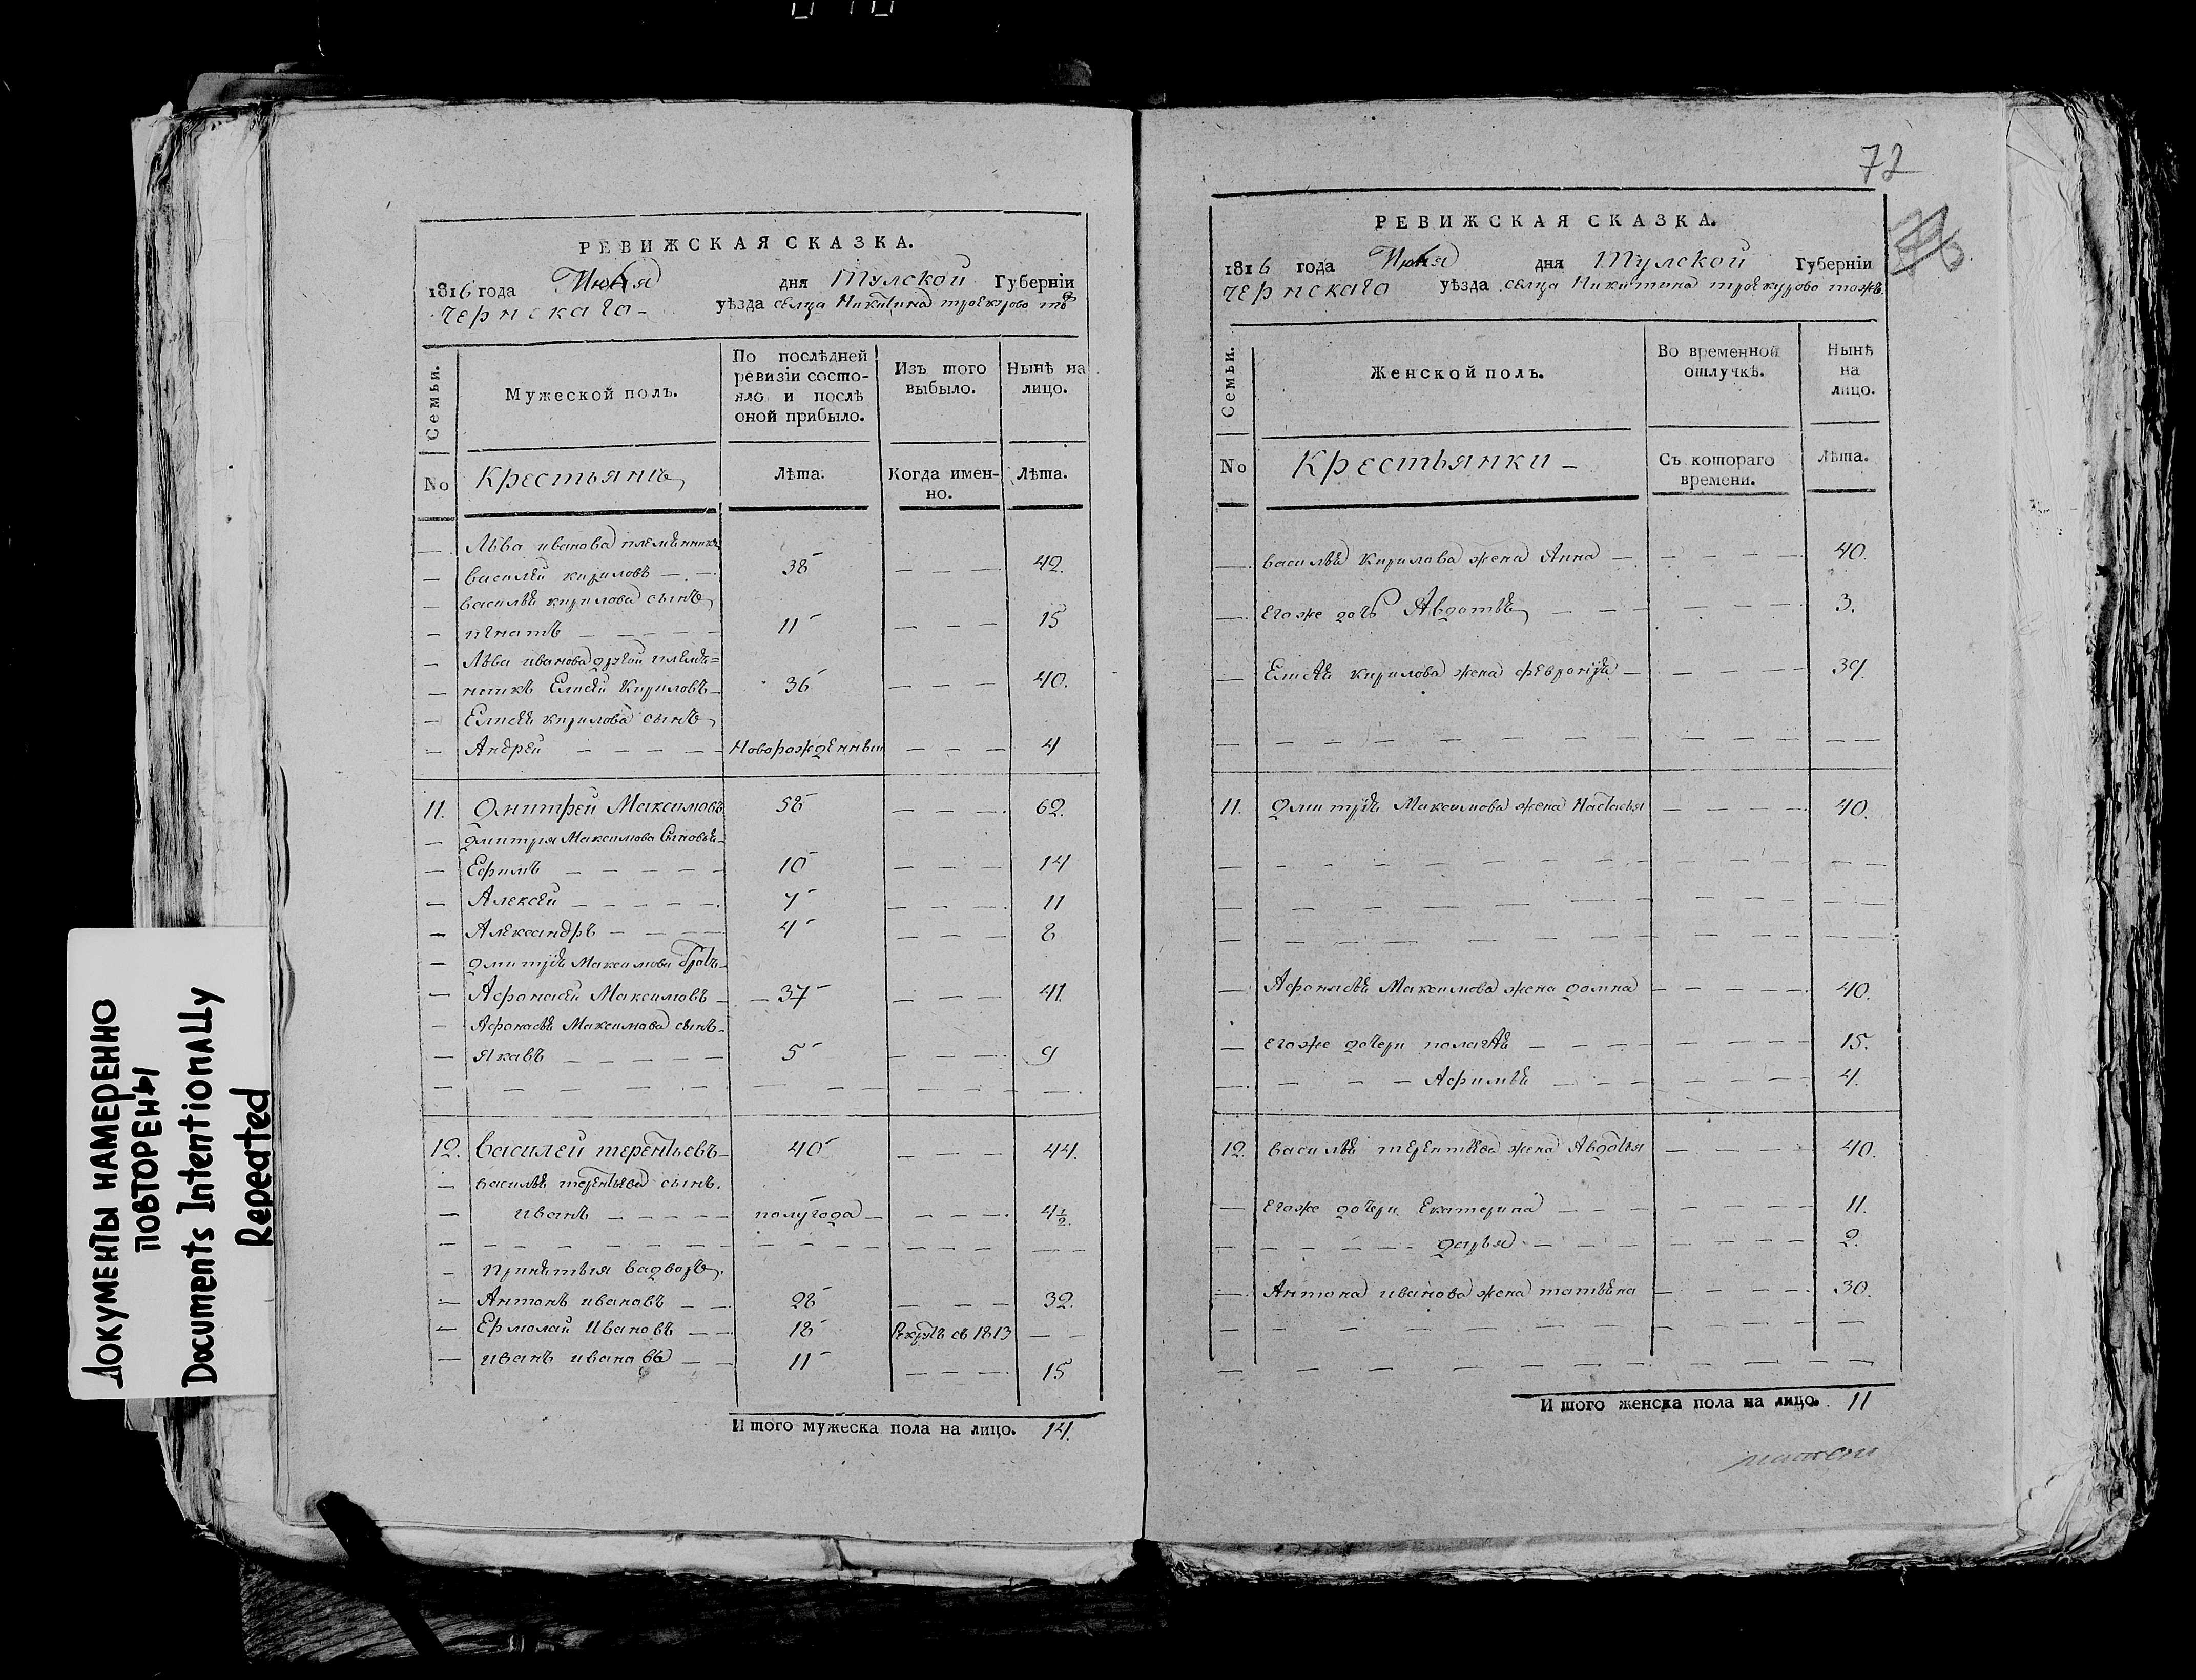 72
РЕВИЖСКАЯ СКАЗКА.
1816 года Июня дня Тулской Губерніи
чернскаго уѣзда селца Никитина троекурово тож
Семьи.
Мужеской полъ.
По послѣдней ревизіи состояло и послѣ оной прибыло.
Изъ того выбыло.
Нынѣ на лицо.
No Крестьянѣ Лѣта. Когда именно. Лѣта.
Лва иванова племянникъ
василей кириловъ 38 42.
василья кирилова сынъ
игнатъ 11 15
Лва иванова другой племя=
нникъ Елисей Кириловъ 36 40.
Елисея кирилова сынъ
Андрей Новорожденный 4
11. Дмитрей Максимовъ 58 62.
дмитрия Максимова Сыновья
Ефимъ 10 14
Алексей 7 11
Александръ 4 8
дмитрия Максимова братъ
Афонасей Максимовъ 37 41.
Афонасья Максимова сынъ
Яковъ 5 9
12. василей терентьевъ 40 44.
василья терентьева сынъ.
иванъ полугода 4 1/2.
Принятыя вадворъ
Антонъ ивановъ 28 32.
Ермолай Ивановъ 18 Рекрутъ св 1813
иванъ ивановъ 11 15
Итого мужеска пола на лицо. 14.
РЕВИЖСКАЯ СКАЗКА.
1816 года Июня дня Тулской Губерніи
чернскаго уѣзда селца Никитина троекурово тожъ.
Семьи.
Женской полъ.
Во временной отлучкѣ.
Нынѣ на лицо.
No Крестьянки Съ котораго времени. Лѣта.
василья Кирилова жена Анна 40.
егоже дочь Авдотья 3.
Елисея кирилова жена февронья 39
11. дмитрия Максимова жена Настасья 40.
Афонасья Максимова жена домна 40.
егоже дочери полагея 15.
Афимья 4.
12. василья терентьева жена Авдотья 40.
егоже дочери Екатерина 11.
дарья 2.
Антона иванова жена татьяна 30.
Итого женска пола на лицо. 11
ДОКУМЕНТЫ НАМЕРЕННО
ПОВТОРЕНЫ
Documents Intentionally
Repeated